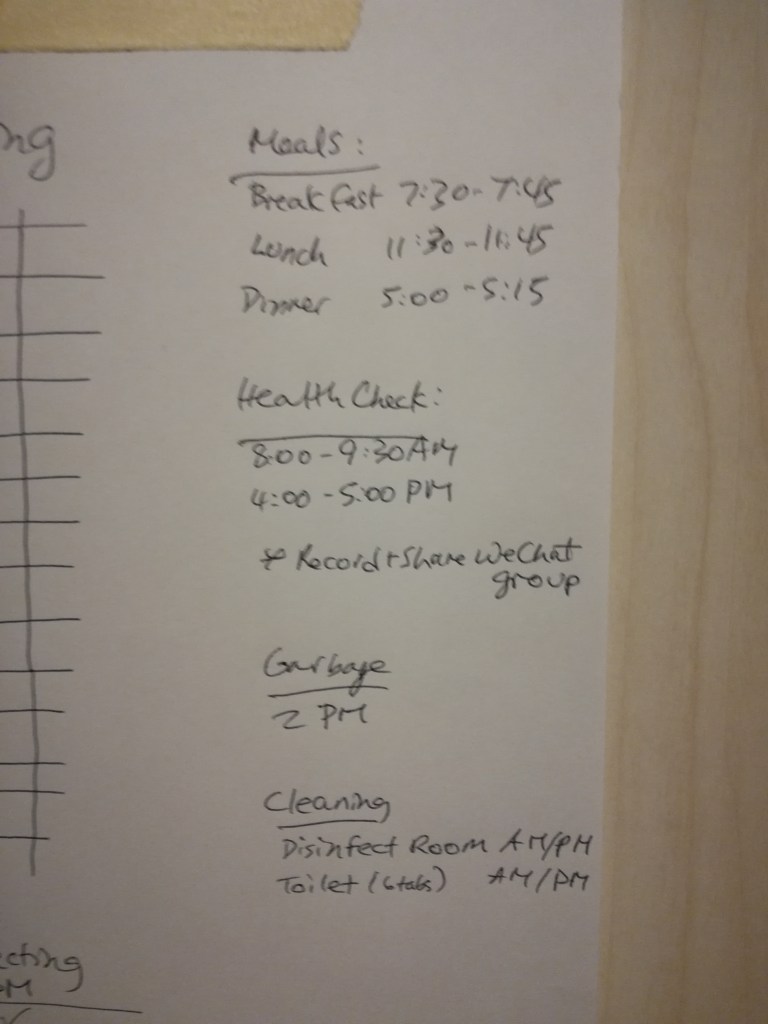 ng
Meals:
Breakfast 7:30-7:45
Lunch 11:30-11:45
Dinner 5:00-5:15
Health Check:
8:00-9:30AM
4:00-5:00 PM
* Record+Share WeChat
group
Garbage
2 PM
Cleaning
Disinfect Room AM/PM
Toilet (6tabs) AM/PM
cting
PM